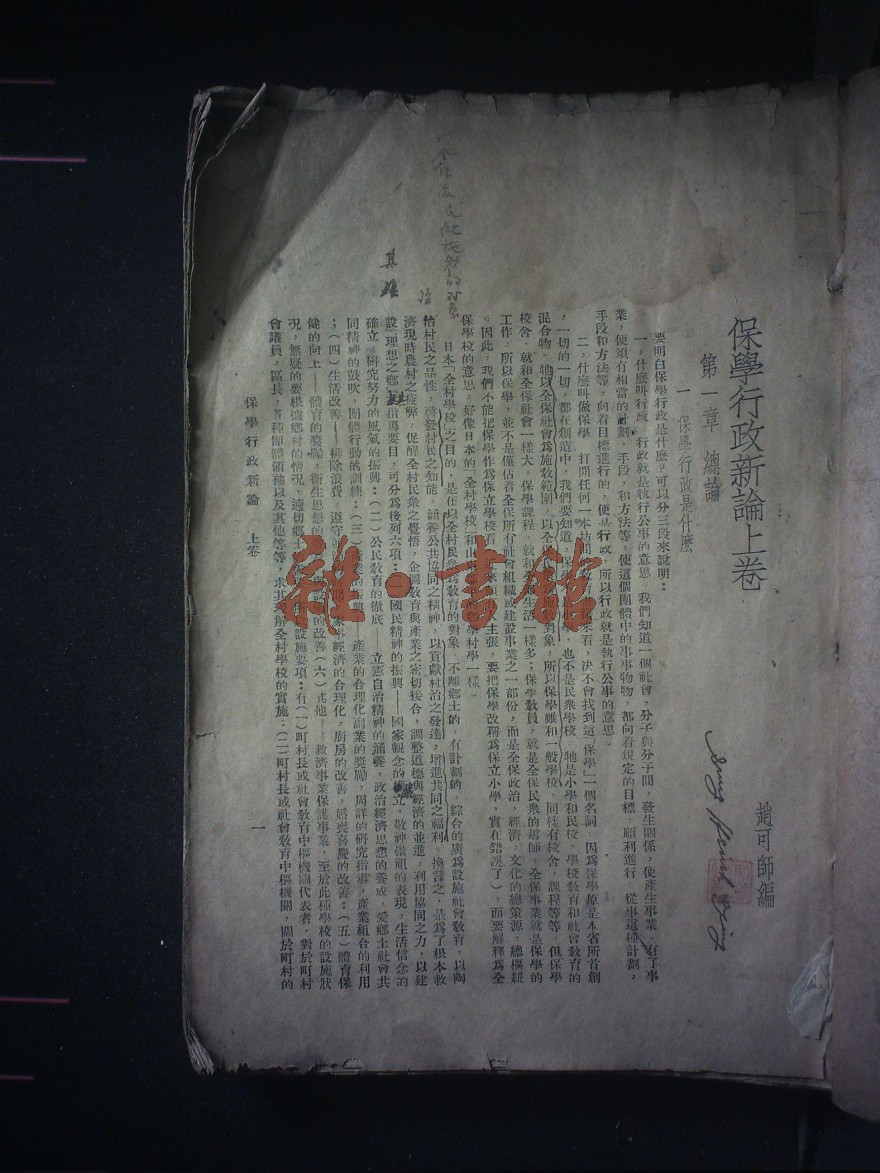 保學行政新論上卷
趙可師編
第一章 總論
一 保學行政是什麼
要明白保學行政是什麼？可以分三段來說明：
一，什麼叫行政 行政就是執行公事的意思。我們知道一個社會，分子與分子間，發生關係，使產生事業，有了事
業，便須有相當的計劃，手段，和方法等，使這個團體中的事事物物，都向着規定的目標，順利進行，從事這種計劃，
手段和方法等，向着目標進行的，便是行政，所以行政就是執行公事的意思。
二，什麼叫做保學 打開任何一本 教育 來看，決不會找到這「保學」一個名詞，因為保學原是本省所首創
，一切的一切，都在創造中，我們要知道，保 也不是民衆學校，牠是小學和民校，學校教育和社會教育的
混合物，牠以全保社會爲施教範圍，以全 對象，所以保學雖和一般學校，同樣有校舍，課程等等，但保學
校舍，就和全保社會一樣大，保學課程，就和 生活一樣多；保學教員，就是全保民衆的導師，全保事業就是保學的
工作，所以保學，並不是僅佔着全保所有社會組織或建設事業之一部份，而是全保政治，經濟，文化的總策源，總樞紐
。因此，我們不能把保學作爲保立學校看 主張，要把保學改稱爲保立小學，實在錯誤了），而要解釋爲全
保學校的意思，好像日本的「全村學校」和山 學村一樣。
日本「全村學校」之目的，是在以全村民 爲教育的對象，不離鄉土的，有計劃的，綜合的廣爲設施社會教育，以陶
冶村民之品性，啓發村民之知能，涵養公共協同之精神，以貢獻村治之發達，增進共同之福利，換言之，是爲了根本救
濟現時農村之疲弊，促醒全村民衆之覺悟，企圖教育與產業之密切接合，調整道德與經濟的並進，利用協同之力，以建
設「理想之鄉」 指導要目，可分爲後列六項： 國民精神的振興——國家觀念的 立，敬神崇祖的表現，生活信念的
確立，研究努力的風氣的振興；（二）公民教育的徹底——立憲自治精神的涵養，政治經濟思想的養成，愛鄉土社會共
同精神的鼓吹，團體行動的訓練；（三）產業的 興 產業的合理化副業的獎勵，周詳的研究指導，產業組合的利用
；（四）生活改善——排除浪費，遵守 家事經濟的合理化，廚房的改善，婚喪喜慶的改善；（五）體育保
健的向上——體育的獎勵，衛生思想的 的改善（六）其他——救濟事業保護事業，至於此種學校的設施狀
況，無疑的要根據鄉村的情況，適切鄉土 設施要項：有（一）町村長或社會教育中樞機關代表者，對於町村
會議員，區長，各種團體領袖以及其他等等，求其 解全村學校的實施；（二）町村長或社會教育中樞機關，關於町村的
保學行政新論 上卷
一
其
治
雜·書館